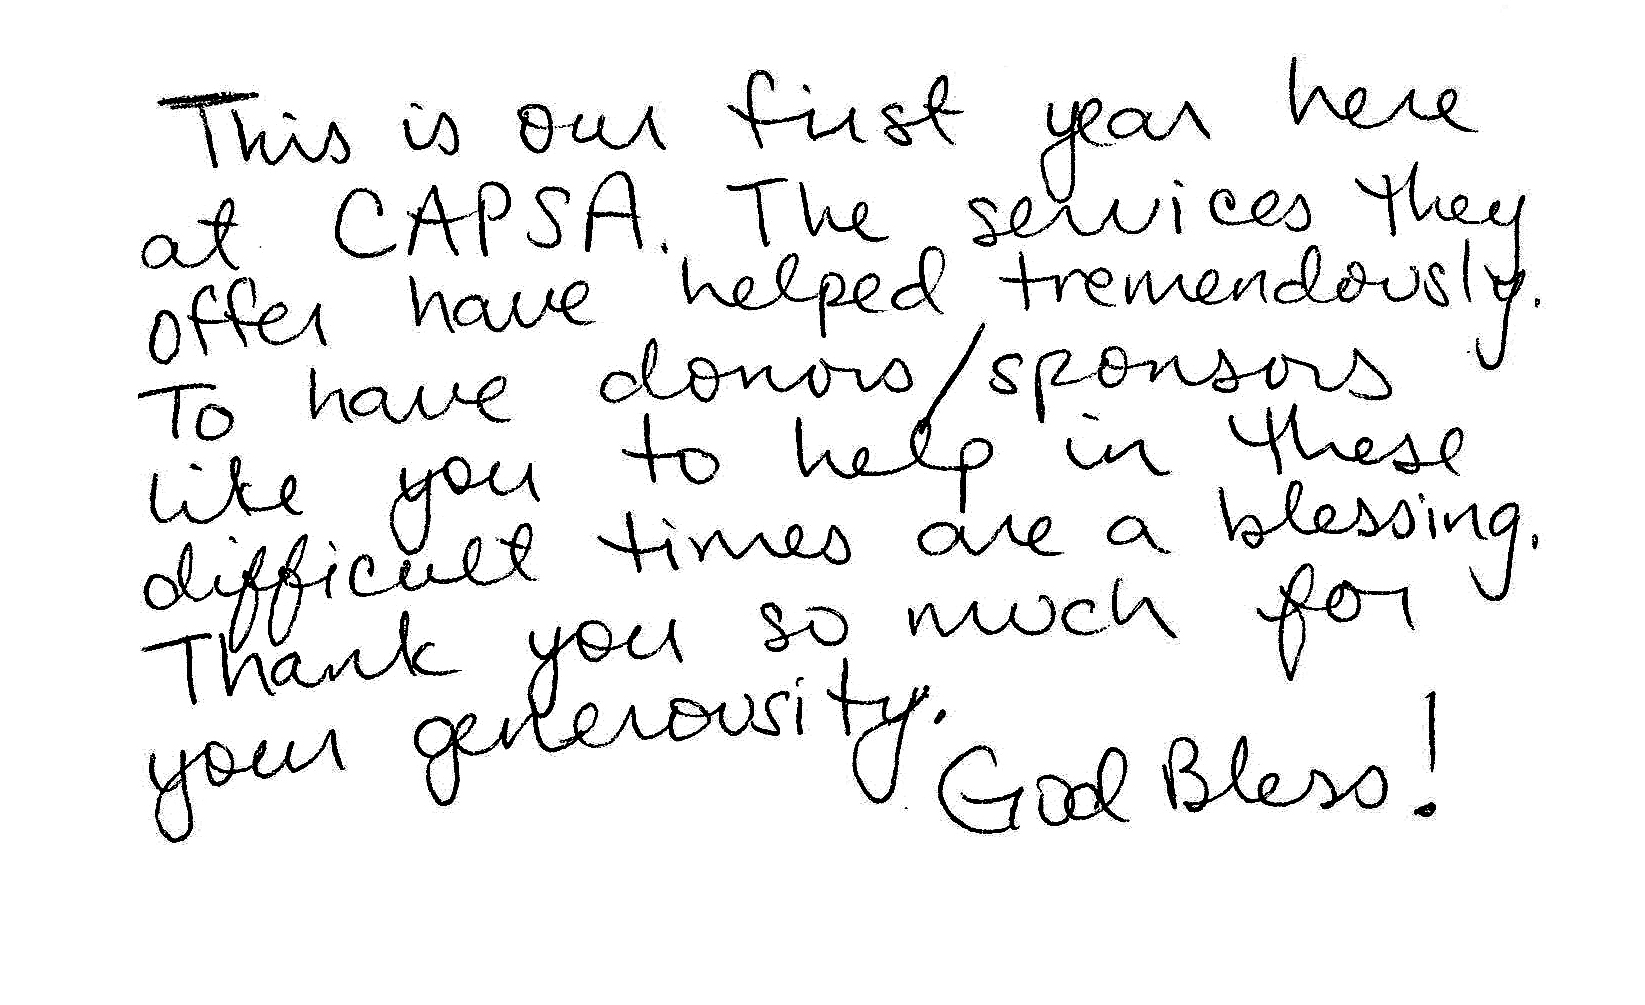 This is our first year here
at CAPSA. The services they
offer have helped tremendously.
To have donors/sponsors
like you to help in these
difficult times are a blessing.
Thank you so much for
your generousity.
God Bless!